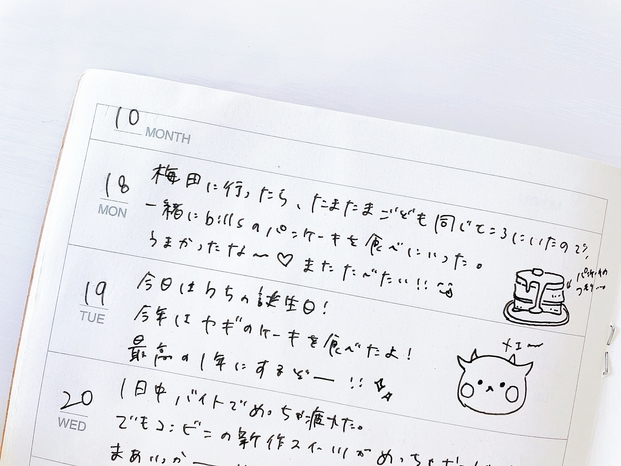 10 MONTH
18 MON
梅田に行ったら、たまたまごども同じところにいたので、
一緒にbillsのパンケーキを食べにいった。
うまかったな〜♡ またたべたい!!
パンケーキの
つもり…
19 TUE
今日はうちの誕生日!
今年はヤギのケーキを食べたよ!
最高の1年にするぞー!!
メェ〜
20 WED
1日中バイトでめっちゃ疲れた。
でもコンビニの新作スイーツがめっちゃ
まあいっかー